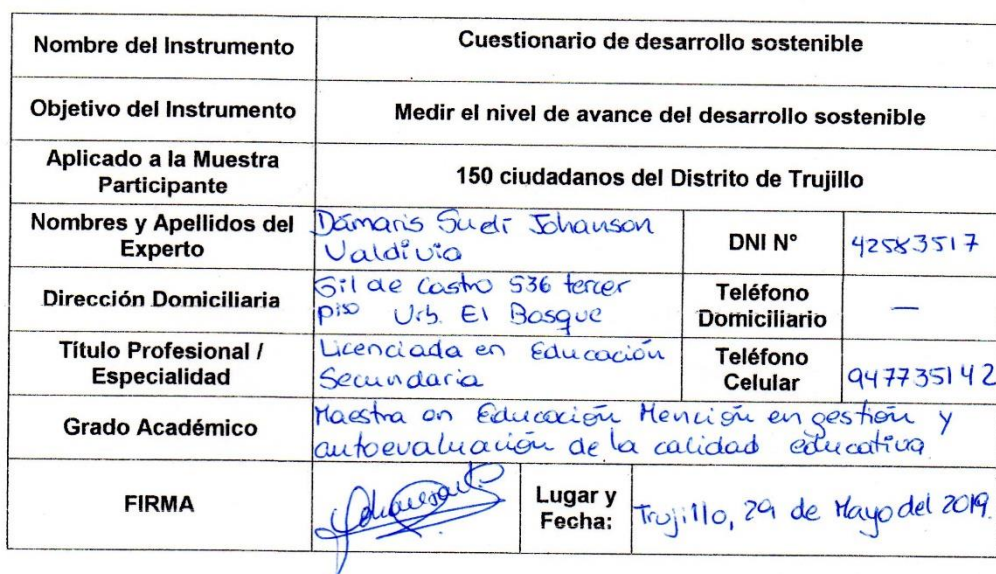 Nombre del Instrumento
Cuestionario de desarrollo sostenible
Objetivo del Instrumento
Medir el nivel de avance del desarrollo sostenible
Aplicado a la Muestra
Participante
150 ciudadanos del Distrito de Trujillo
Nombres y Apellidos del
Experto
Dámaris Suetí Johanson
Valdivia
DNI N°
42583517
Dirección Domiciliaria
Gil de Castro 536 tercer
piso Urb. El Bosque
Teléfono
Domiciliario
—
Título Profesional /
Especialidad
Licenciada en Educación
Secundaria
Teléfono
Celular
947735142
Grado Académico
Maestra en Educación Mención en gestión y
autoevaluación de la calidad educativa
FIRMA
Lugar y
Fecha:
Trujillo, 29 de Mayo del 2019.